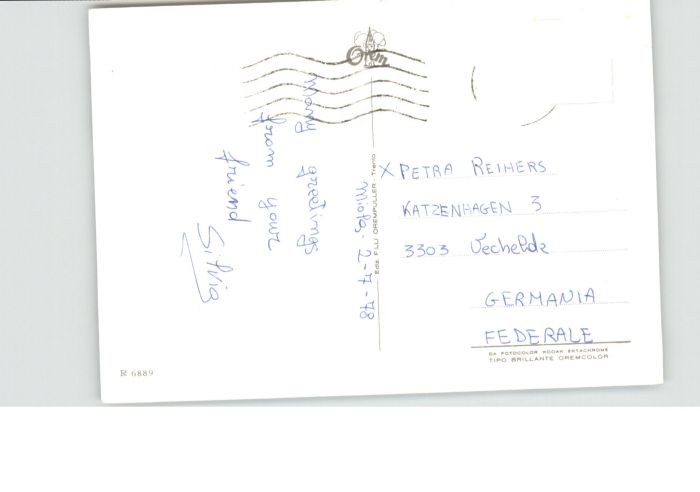 Orem
Many greetings
from your
friend
Silvia
Miola, 2-7-78
Ediz. F.LLI OREMPULLER - Trento
X PETRA REIHERS
KATZENHAGEN 3
3303 Vechelde
GERMANIA
FEDERALE
DA FOTOCOLOR KODAK EKTACHROME
TIPO BRILLANTE OREMCOLOR
R 6889